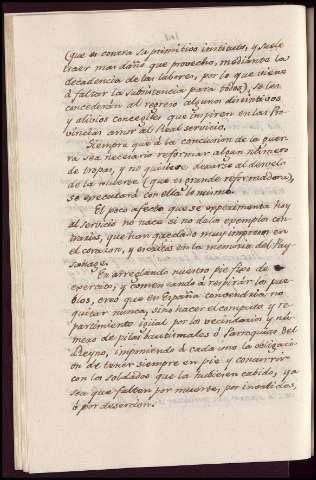 (que es contra su primitivo instituto, y suele
traer mas daño que provecho, mediante la
decadencia de las labores, por lo que viene
á faltar la subsistencia para todos), se les
concederán al regreso algunos distintivos
y alivios concegiles que impriman en las Pro-
vincias amor al Real servicio.
Siempre que á la conclusion de la guer-
ra sea necesario reformar algun número
de tropas, y no quisiere dexarse al desvelo
de la muerte (que es grande reformadora),
se executará con ella lo mismo.
El poco afecto que se experimenta hoy
al servicio no nace si no de los exemplos con-
trarios, que han quedado muy impresos en
el corazon, y escritos en la memoria del Pay-
sanage.
En arreglando nuestro pie fixo de
exército, y comenzando á respirar los pue-
blos, creo que en España convendría no
quitar nunca, sino hacer el computo y re-
partimiento igual por los vecindarios y nú-
mero de pilas bautismales ó Parroquias del
Reyno, imponiendo á cada una la obligaci-
on de tener siempre en pie y concurrir
con los soldados que la hubiesen cabido, ya
sea que falten por muerte, por invalidos,
ó por desercion.